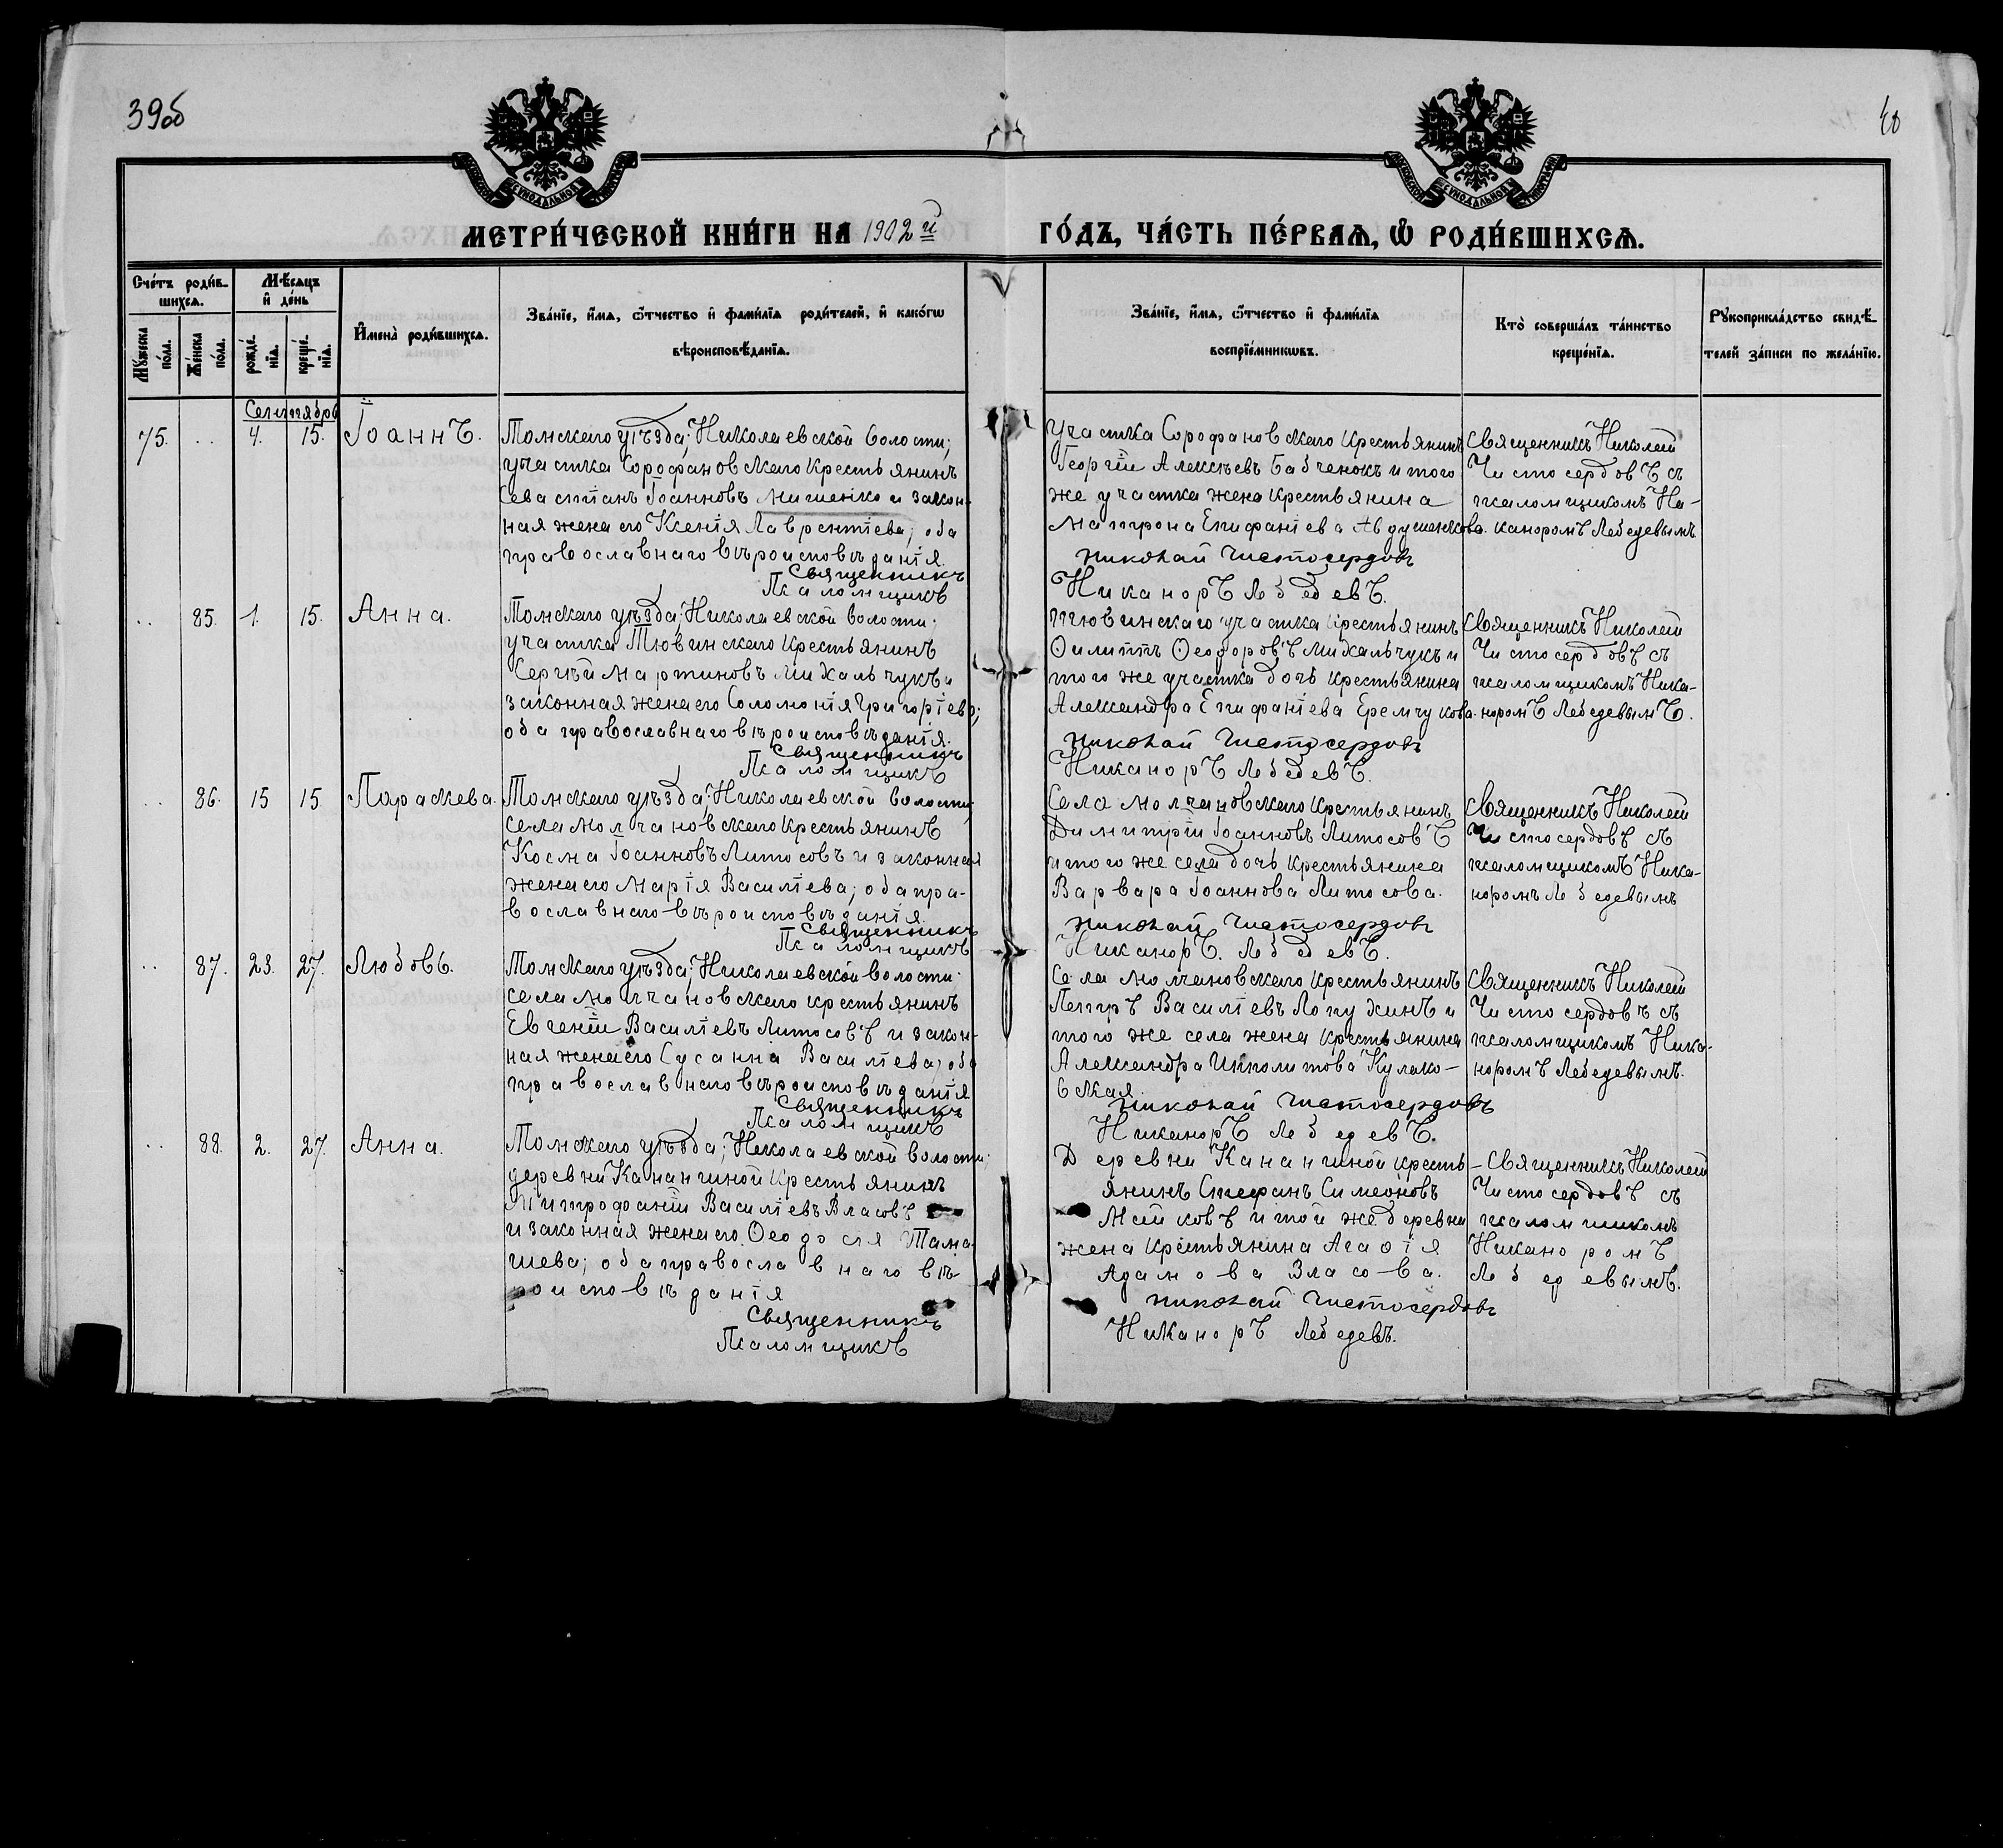 39об
40
МЕТРИ́ЧЕСКОЙ КНИ́ГИ НА 1902 й ГО́ДЪ, ЧА́СТЬ ПЕ́РВАѦ, Ѡ҆ РОДИ́ВШИХСѦ.
Сче́тъ роди́в-
шихсѧ.
Мѣ́сѧцъ
и҆ де́нь
Мꙋ́жеска
по́ла.
Же́нска
по́ла.
рожде́-
нїѧ.
креще́-
нїѧ.
И҆мена̀ роди́вшихсѧ.
Зва́нїе, и҆́мѧ, ѻ҆́тчество и҆ фами́лїѧ роди́телей, и҆ како́гѡ
вѣроисповѣ́данїѧ.
Зва́нїе, и҆́мѧ, ѻ҆́тчество и҆ фами́лїѧ
воспрїе́мникѡвъ.
Кто̀ соверша́лъ та́инство
креще́нїѧ.
Рꙋкоприкла́дство свидѣ́-
телей за́писи по жела́нїю.
Сентября
75. .. 4. 15. Іоаннъ.
Томскаго уѣзда; Николаевской волости;
участка Сорофановскаго крестьянинъ
Севастіанъ Іоанновъ Мишенко и закон-
ная жена его Ксенія Лаврентіева; оба
православнаго вѣроисповѣданія.
Священникъ
Псаломщикъ
Участка Сорофановскаго крестьянинъ
Георгій Алексѣевъ Бабченокъ и того
же участка жена крестьянина
Матрона Епифаніева Авдушенкова.
Николай Чистосердовъ
Никаноръ Лебедевъ.
Священникъ Николай
Чистосердовъ съ
псаломщикомъ Ни-
каноромъ Лебедевымъ
.. 85. 1. 15. Анна.
Томскаго уѣзда; Николаевской волости;
участка Тювинскаго крестьянинъ
Сергѣй Мартиновъ Михальчукъ и
законная жена его Соломонія Григоріева;
оба православнаго вѣроисповѣданія.
Священникъ
Псаломщикъ
Тювинскаго участка крестьянинъ
Филиппъ Ѳеодоровъ Михальчукъ и
того же участка дочь крестьянина
Александра Епифаніева Еремчукова.
Николай Чистосердовъ
Никаноръ Лебедевъ.
Священникъ Николай
Чистосердовъ съ
псаломщикомъ Ника-
норомъ Лебедевымъ.
.. 86. 15 15. Параскева.
Томскаго уѣзда; Николаевской волости;
села Молчановскаго крестьянинъ
Косма Іоанновъ Литосовъ и законная
жена его Марія Василіева; оба пра-
вославнаго вѣроисповѣданія.
Священникъ
Псаломщикъ
Села Молчановскаго крестьянинъ
Димитрій Іоанновъ Литосовъ
и того же села дочь крестьянина
Варвара Іоаннова Литосова.
Николай Чистосердовъ
Никаноръ. Лебедевъ.
Священникъ Николай
Чистосердовъ съ
псаломщикомъ Ника-
норомъ Лебедевымъ
.. 87. 23. 27. Любовь.
Томскаго уѣзда; Николаевской волости
села Молчановскаго крестьянинъ
Евгеній Василіевъ Литосовъ и закон-
ная жена его Сусанна Василіева; оба
православнаго вѣроисповѣданія
Священникъ
Псаломщикъ
Села Молчановскаго крестьянинъ
Петръ Василіевъ Лопухинъ и
того же села жена крестьянина
Александра Иполитова Кулако-
вская.
Николай Чистосердовъ
Никаноръ Лебедевъ.
Священникъ Николай
Чистосердовъ съ
псаломщикомъ Ника-
норомъ Лебедевымъ.
.. 88. 2. 27. Анна.
Томскаго уѣзда; Николаевской волости
деревни Канангиной крестьянинъ
Митрофаній Василіевъ Власовъ
и законная жена его Ѳеодосія
шева; оба православнаго вѣ-
роисповѣданія
Священникъ
Псаломщикъ
Деревни Канангиной кресть-
янинъ Стефанъ Симеоновъ
Майковъ и той же деревни
жена крестьянина Агаѳія
Адамова Власова.
Николай Чистосердовъ
Никаноръ Лебедевъ.
Священникъ Николай
Чистосердовъ съ
псаломщикомъ
Никаноромъ
Лебедевымъ.